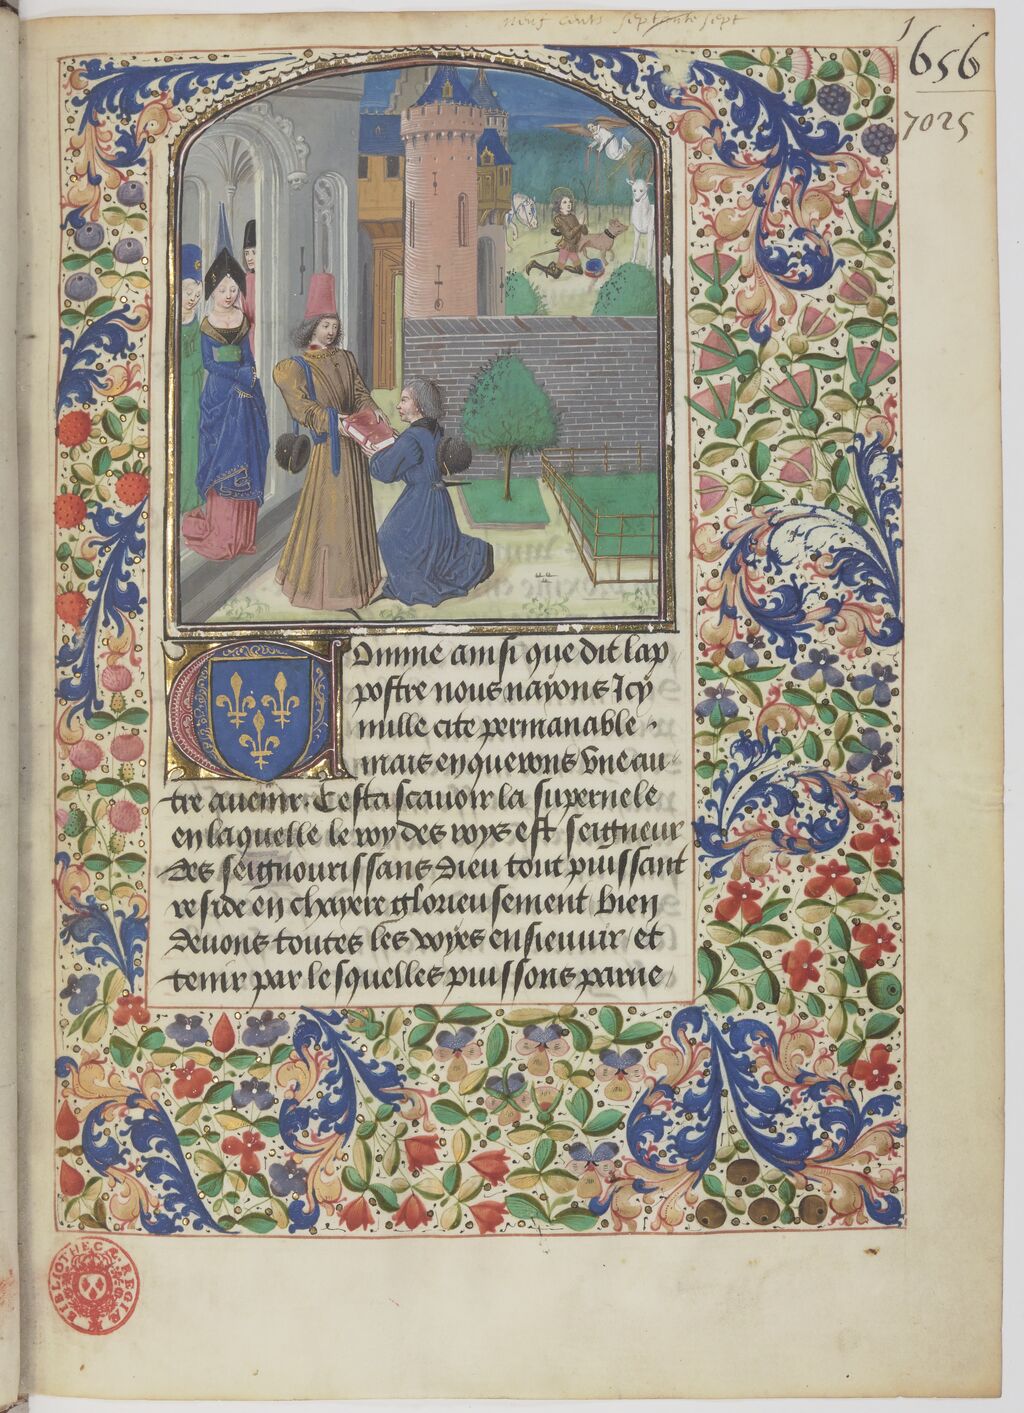 neuf cents septante sept
1
656
7025
Comme ainsi que dit lap
postre nous nayons Icy
nulle cite permanable ·
mais enquerons vne au
tre auenir. Cest ascauoir la supernele
en laquelle le roy des roys est seigneur
des seignouris sans Dieu tout puissant
reside en chayere glorieusement bien
deuons toutes les voyes ensieuuir et
tenir par lesquelles puissons parue
BIBLIOTHECÆ REGIÆ